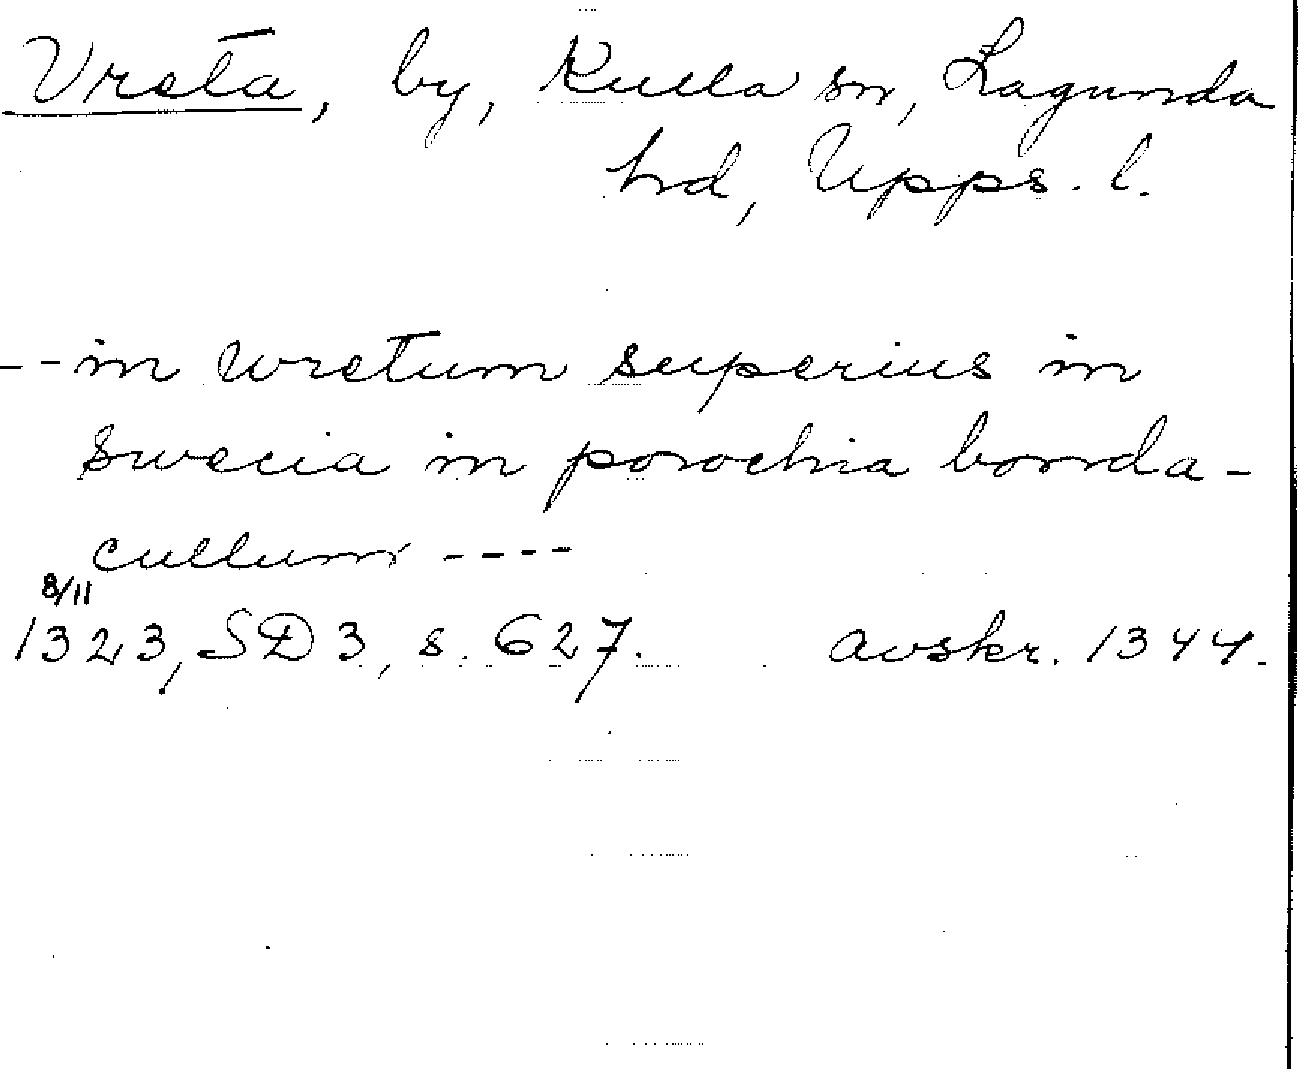 Vreta, by, Kulla sn, Lagunda
hd, Upps. l.
--in wretum superius in
swecia in porochia bonda-
cullum ----
8/11
1323, SD 3, s. 627. avskr. 1344.